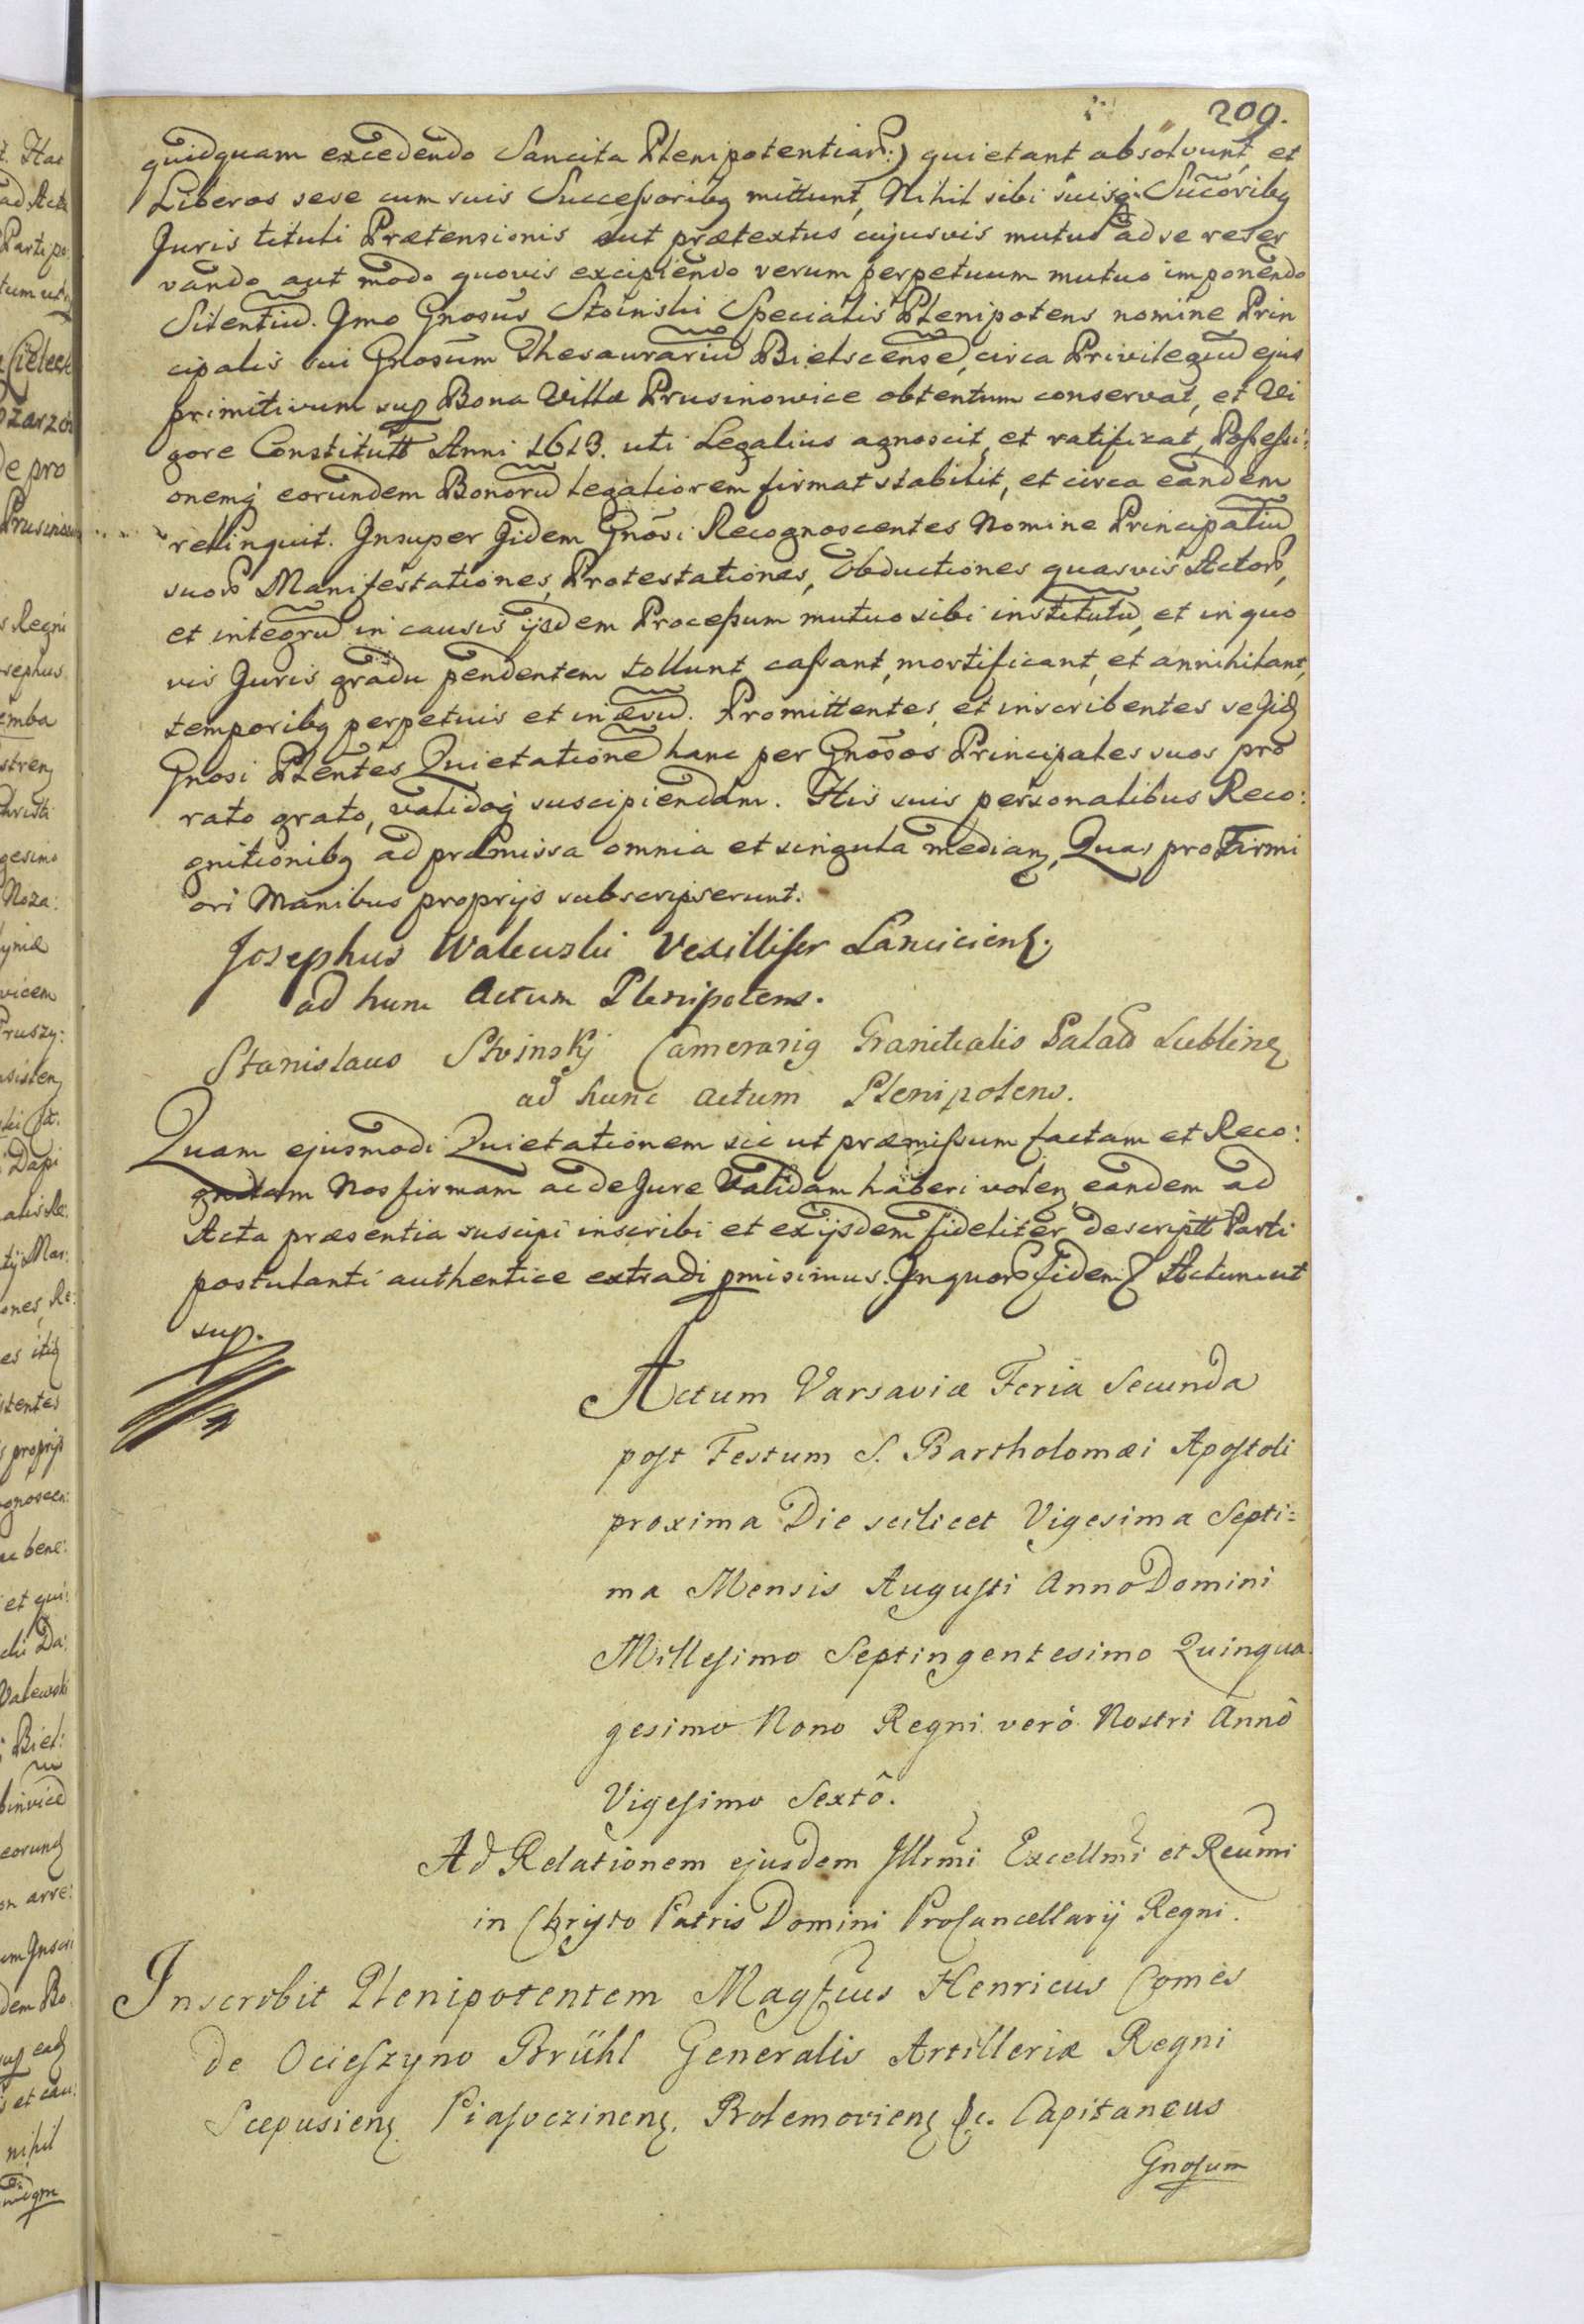 209.
quidquam excedendo Sancita Plenipotentiar:) quietant absolvunt, et
Liberos sese cum suis Succeſsoribq mittunt, Nihil sibi suisq Succoribq
Juris tituli Prætensionis aut prætextus cujusvis mutuo ad se reser
vando aut modo quovis excipiendo verum perpetuum mutuo imponendo
Silentiu. Imo Gnosus Stoinski Specialis Plenipotens nomine Prin
cipalis sui Gnosum Thesaurariu Bielscense, circa Privilegiu ejus
primitivum sup Bona Villæ Prusinowice obtentum conservat, et Vi
gore Constitutt Anni 1613. uti Legalius agnoscit, et ratificat, Poſseſsi:
onemq eorundem Bonoru legaliorem firmat stabilit, et circa eandem
relinquit. Insuper Iidem Gnosi Recognoscentes Nomine Principaliu
suor Manifestationes, Protestationes, Obductiones quasvis Actor,
et integru in causis ijsdem Proceſsum mutuo sibi institutu, et in quo
vis Juris gradu pendentem tollunt, caſsant, mortificant, et annihilant,
temporibq perpetuis et in ævu. Promittentes, et inscribentes se Iid
Gnosi Plentes Quietatione hanc per Gnosos Principales suos pro
rato grato, validoq suscipiendam. His suis personalibus Reco:
gnitionibq ad præmissa omnia et singula median, Quas pro Firmi
ori Manibus proprijs subscripserunt.
Josephus Walewski Vexillifer Lancicien.
ad hunc Actum Plenipotens.
Stanislaus Stoinskj Camerariq Granitialis Palad Lublinen
ad hunc actum Plenipotens.
Quam ejusmodi Quietationem sic ut præmiſsum factam et Reco:
gnitam Nos firmam ac de Jure Validam haberi volen eandem ad
Acta præsentia suscipi inscribi et ex ijsdem fideliter descriptt Parti
postulanti authentice extradi pmisimus. In quor fidem & Actum ut
sup.
Actum Varsaviæ Feria Secunda
poſt Festum S. Bartholomæi Apoſtoli
proxima Die scilicet Vigesima Septi=
ma Mensis Auguſti Anno Domini
Milleſimo Septingentesimo Quinqua
gesimo Nono Regni verò Nostri Annô
Vigeſimo Sextô.
Ad Relationem ejusdem Illrmi Excellmi et Reumi
in Chriſto Patris Domini ProCancellarij Regni.
Inscribit Plenipotentem Magcus Henricus Comes
de Ocieſzyno Brühl Generalis Artilleriæ Regni
Scepusien Piaſeczinen. Bolemovien &c. Capitaneus
Gnoſum